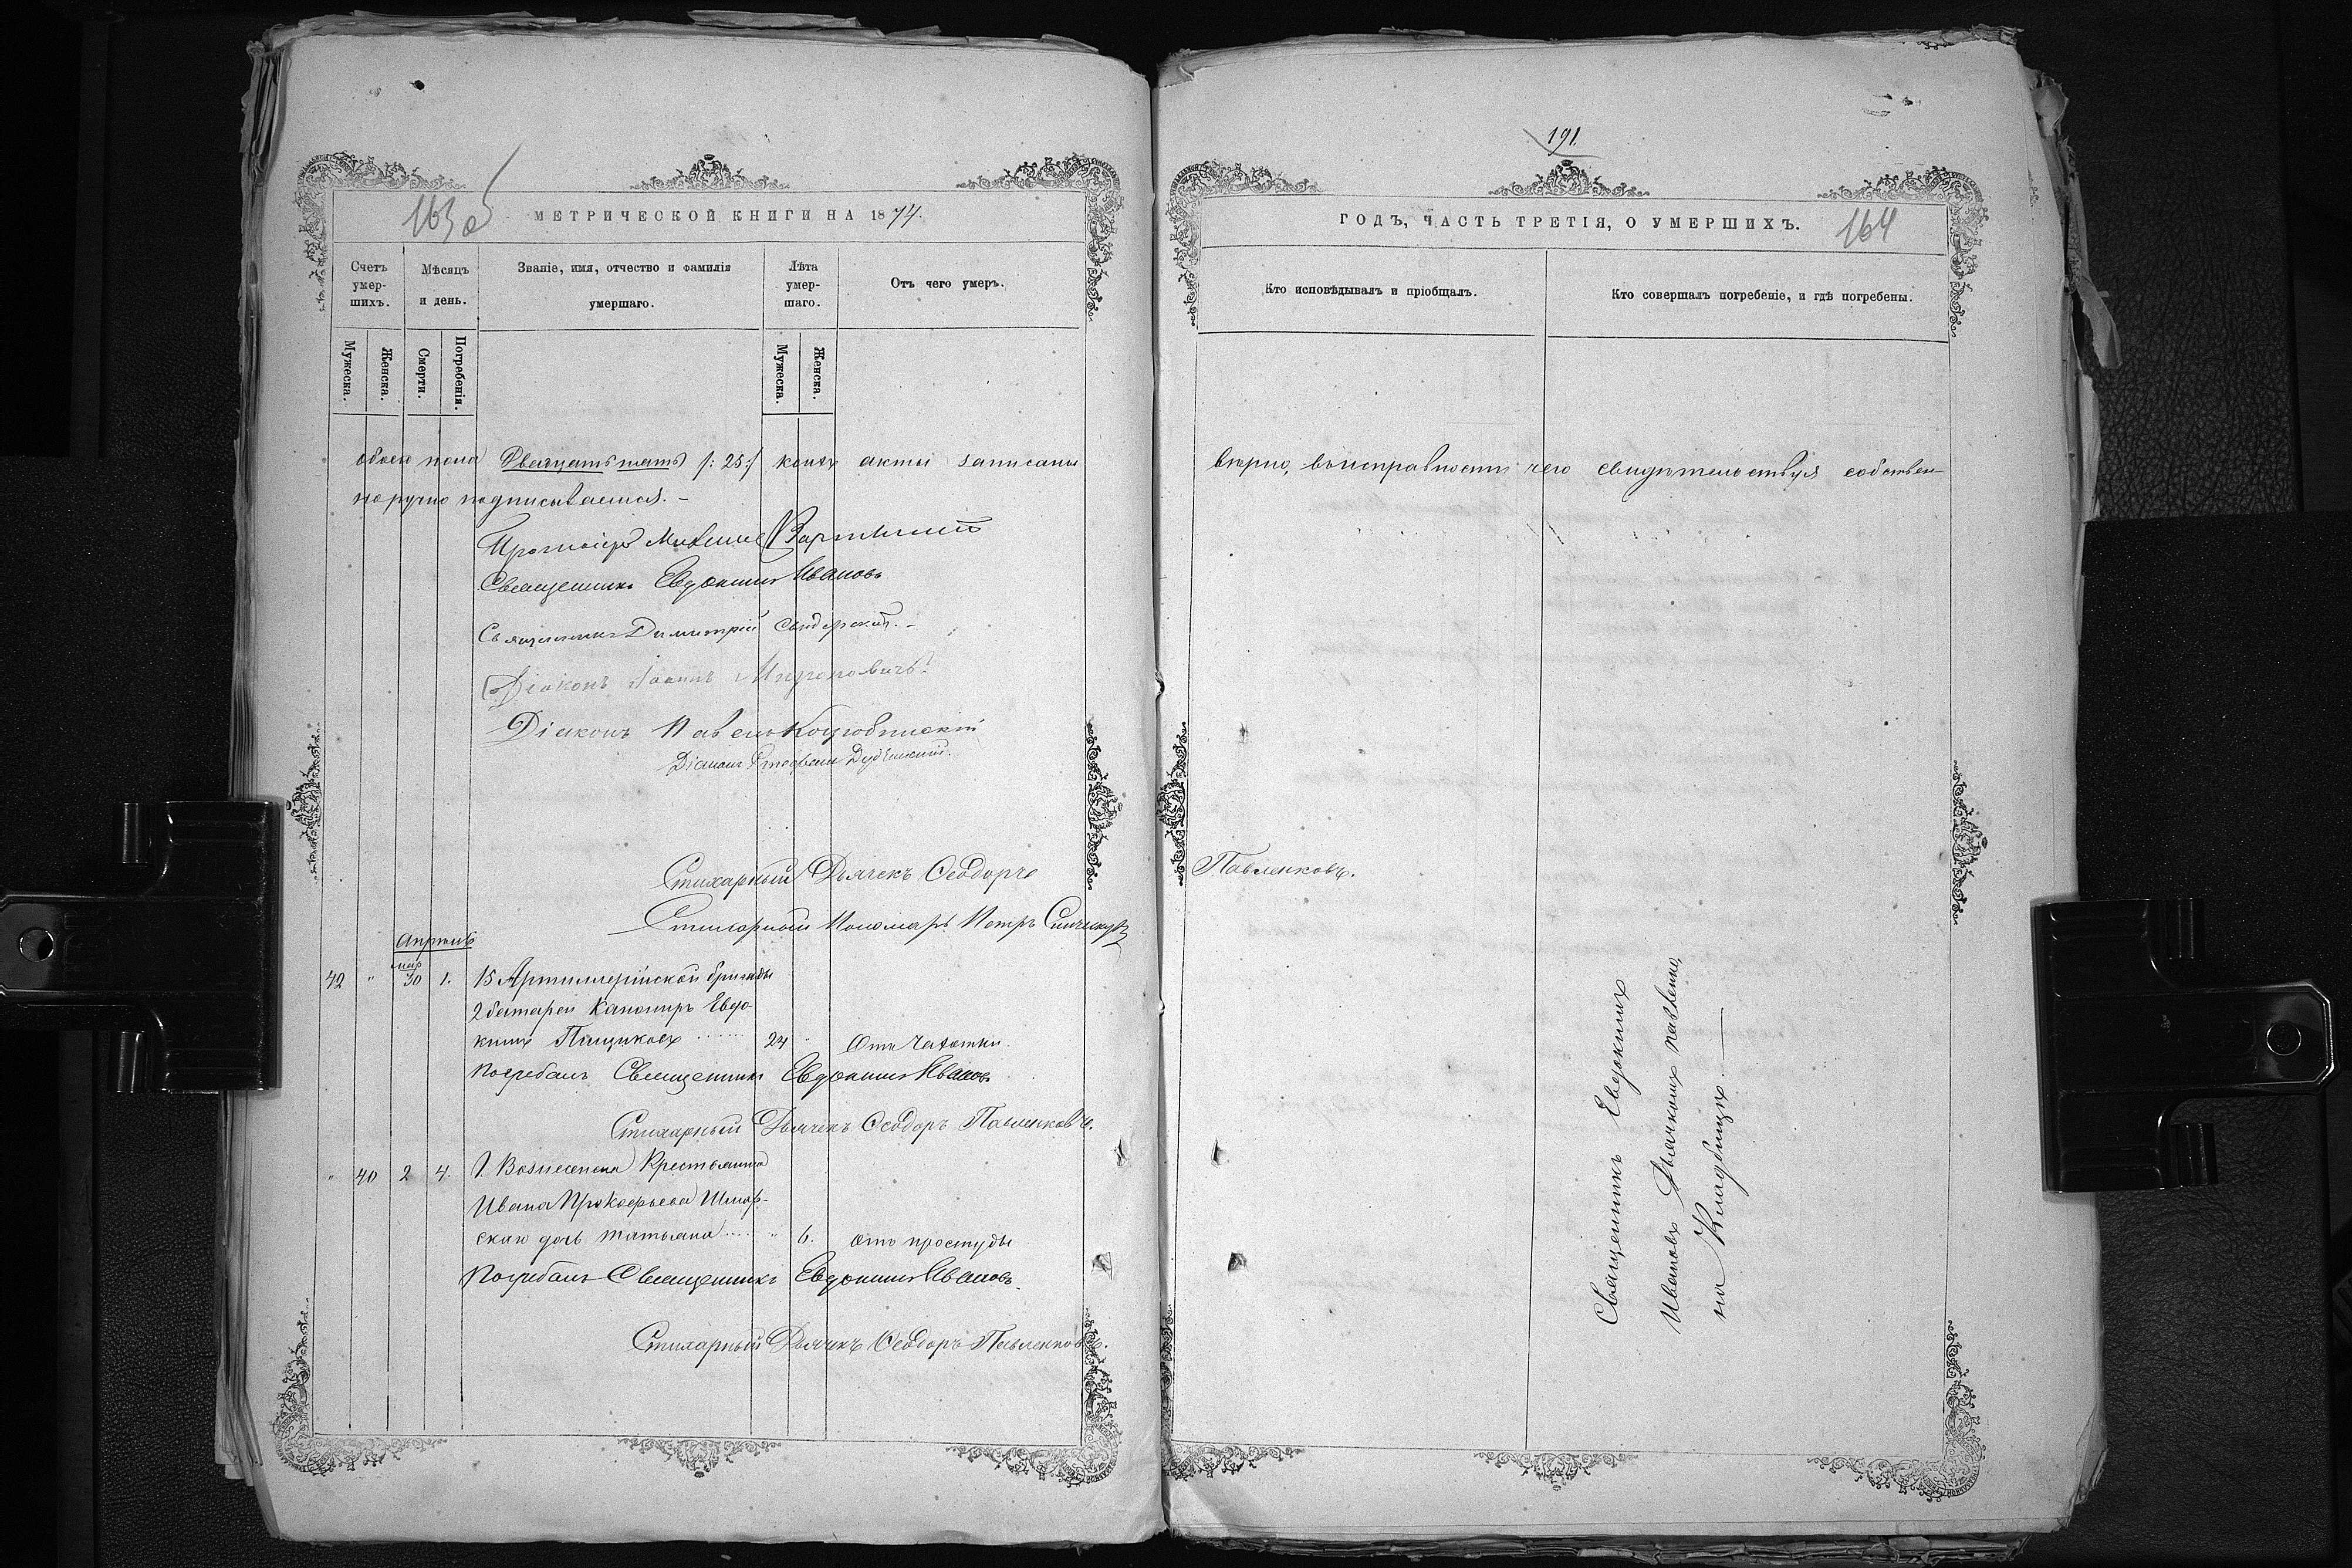 191.
163 об
МЕТРИЧЕСКОЙ КНИГИ НА 1874.
ГОДЪ, ЧАСТЬ ТРЕТІЯ, О УМЕРШИХЪ.
164
Счетъ умершихъ.
Мѣсяцъ и день.
Званіе, имя, отчество и фамилія умершаго.
Лѣта умершаго.
Отъ чего умеръ.
Кто исповѣдывалъ и пріобщалъ.
Кто совершалъ погребеніе, и гдѣ погребены.
Мужеска.
Женска.
Смерти.
Погребенія.
Мужеска.
Женска.
обоего пола Двадцать пять /: 25 :/ коихъ акты записаны вѣрно, въ исправности чего свидѣтельствуя собствен-
норучно подписываемся. –
Священникъ Евдокимъ Ивановъ
Священникъ Димитрій
Діаконъ Іоаннъ Мироновичъ.
Діаконъ Павелъ
Діаконъ Стефанъ
Стихарный Дьячекъ Ѳеодоръ Павленковъ.
Стихарный Пономарь Петръ
Апрѣль
мар
42 " 30 1. 15 Артиллерійской бригады
2 батареи Канониръ Евдо-
кимъ Пащиковъ 24 " Отъ Чахотки.
Погребалъ Священникъ Евдокимъ Ивановъ
Стихарный Дьячекъ Ѳеодоръ Павленковъ.
" 40 2 4. Г. Вознесенска Крестьянина
Ивана Прокофьева
дочь Татьяна " 6. Отъ простуды
Погребалъ Священникъ Евдокимъ Ивановъ.
Стихарный Дьячекъ Ѳеодоръ Павленковъ.
Священникъ Евдокимъ
Ивановъ Дьячкомъ Павленко,
на Кладбищѣ. —